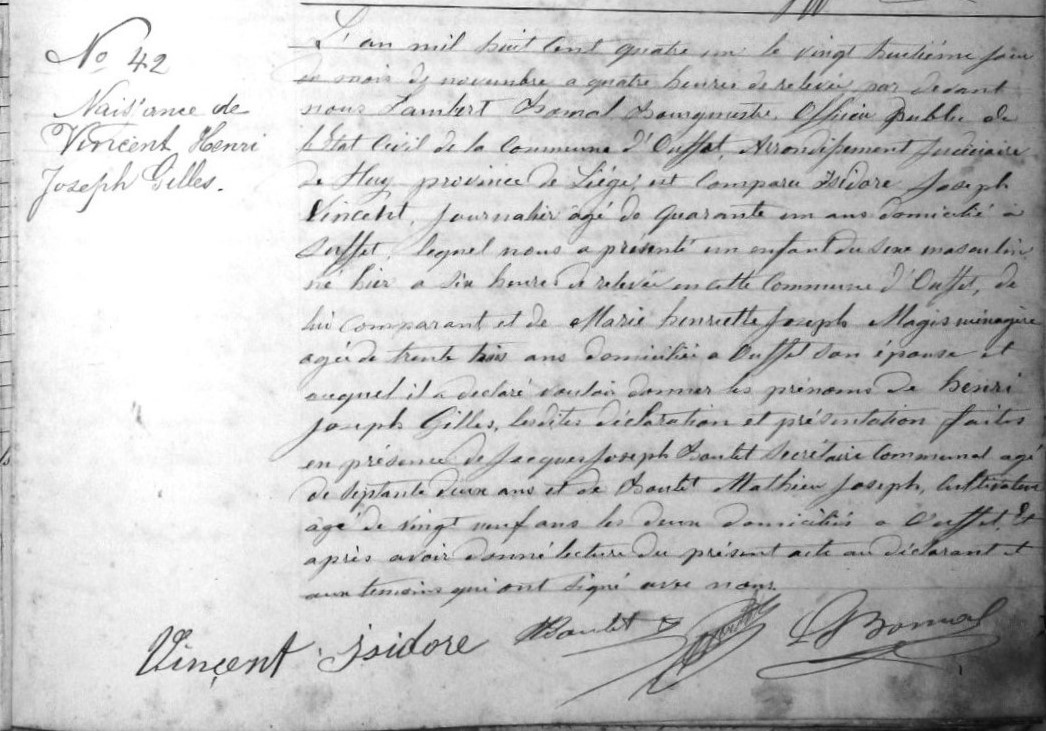 No 42
Naissance de
Vincent Henri
Joseph Gilles.
L'an mil huit cent quatre un le vingt huitième jour
du mois de novembre a quatre heures de relevée par devant
nous Lambert Bomal Bourgmestre, Officier Public de
l'Etat Civil de la Commune d'Ouffet, Arrondissement Judiciaire
de Huy province de Liége, est comparu Isidore Joseph
Vincent, journalier âgé de quarante un ans domicilié à
Ouffet, lequel nous a présenté un enfant du sexe masculin
né hier a six heures de relevée en cette Commune d'Ouffet, de
lui comparant et de Marie henriette Joseph Magis ménagère
agée de trente trois ans domiciliée a Ouffet son épouse et
auquel il a déclaré vouloir donner les prénoms de henri
joseph Gilles, lesdites déclaration et présentation faites
en présence de Jacques Joseph Boutet Secrétaire Communal agé
de septante deux ans et de Boutet Mathieu Joseph, Cultivateur
âgé de vingt neuf ans les deux domiciliés a Ouffet, Et
après avoir donné lecture du présent acte au déclarant et
aux temoins qui ont signé avec nous.
Vincent Isidore Boutet L Bomal